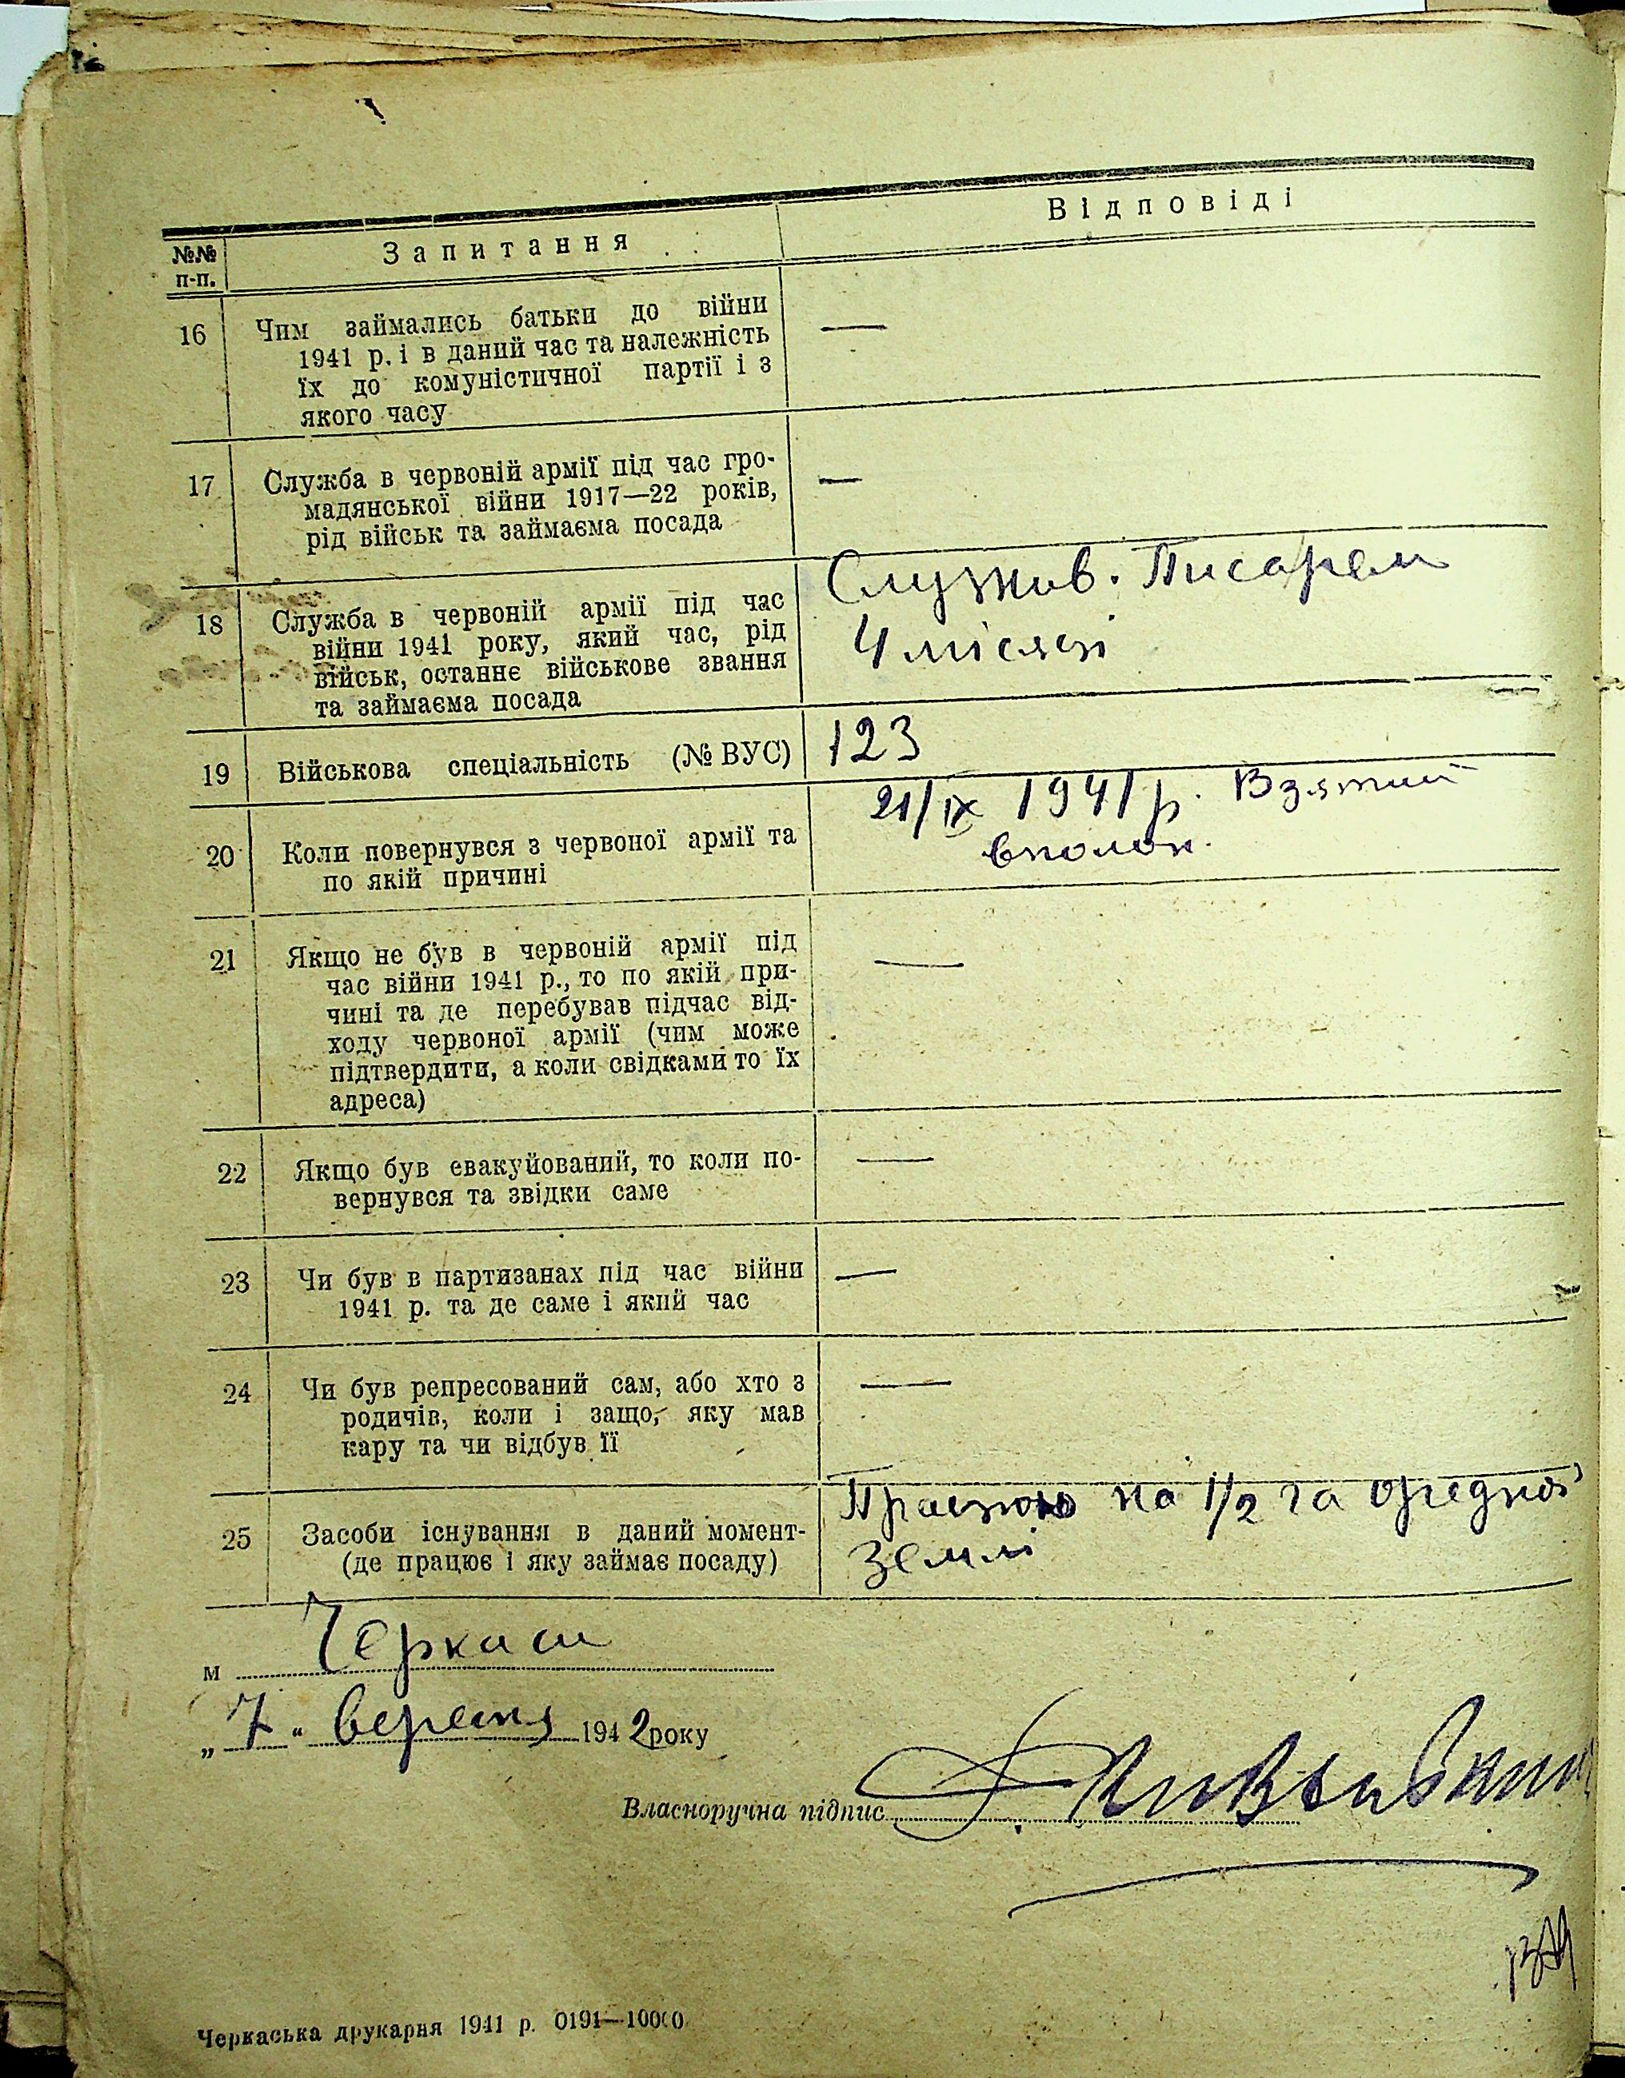 №№ п-п.
Запитання
Відповіді
16
Чим займались батьки до війни
1941 р. і в даний час та належність
їх до комуністичної партії і з
якого часу
—
17
Служба в червоній армії під час гро-
мадянської війни 1917—22 років,
рід військ та займаєма посада
—
18
Служба в червоній армії під час
війни 1941 року, який час, рід
військ, останнє військове звання
та займаєма посада
Служив. Писарем
4 місяці
19
Військова спеціальність (№ ВУС)
123
20
Коли повернувся з червоної армії та
по якій причині
21/IX 1941 р. Взятий
вполон.
21
Якщо не був в червоній армії під
час війни 1941 р., то по якій при-
чині та де перебував підчас від-
ходу червоної армії (чим може
підтвердити, а коли свідками то їх
адреса)
—
22
Якщо був евакуйований, то коли по-
вернувся та звідки саме
—
23
Чи був в партизанах під час війни
1941 р. та де саме і який час
—
24
Чи був репресований сам, або хто з
родичів, коли і защо, яку мав
кару та чи відбув її
—
25
Засоби існування в даний момент-
(де працює і яку займає посаду)
на 1/2 га
землі
м Черкаси
„7“ вересня 1942 року
Власноручна підпис
Черкаська друкарня 1941 р. 0191—10000